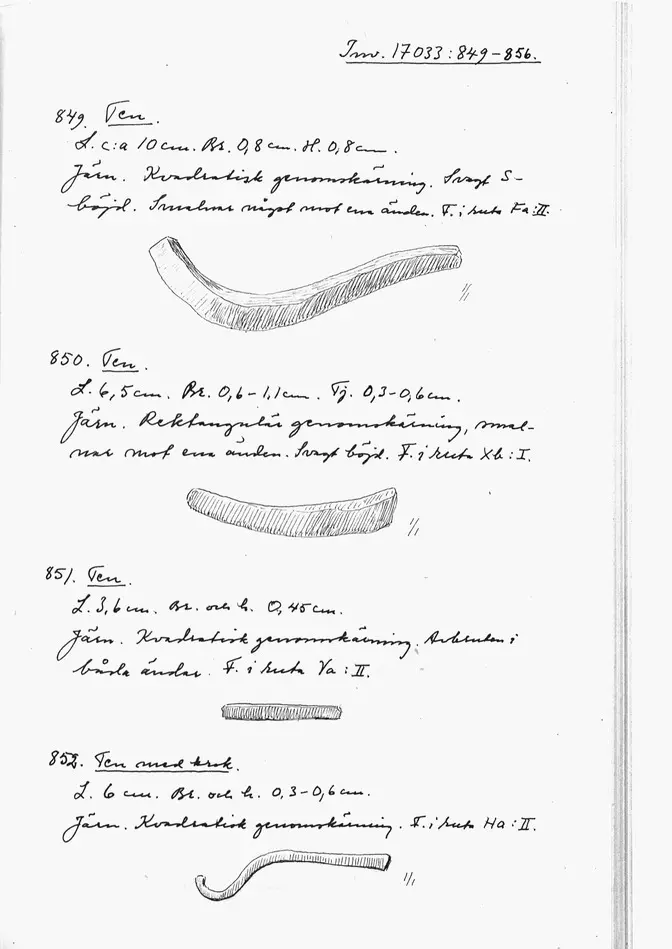 Inv. 17033:849-856.
849. Ten.
L. c:a 10 cm. Br. 0,8 cm. H. 0,8 cm.
Järn. Kvadratisk genomskärning. Svagt S-
böjd. Smalnar något mot ena änden. F. i ruta Fa:II.
1/1
850. Ten.
L. 6,5 cm. Br. 0,6-1,1 cm. Tj. 0,3-0,6 cm.
Järn. Rektangulär genomskärning, smal-
nar mot ena änden. Svagt böjd. F. i ruta Xb:I.
1/1
851. Ten.
L. 3,6 cm. Br. och h. 0,45 cm.
Järn. Kvadratisk genomskärning. Avbruten i
båda ändar. F. i ruta Ya:II.
852. Ten med krok.
L. 6 cm. Br. och h. 0,3-0,6 cm.
Järn. Kvadratisk genomskärning. F. i ruta Ha:II.
1/1